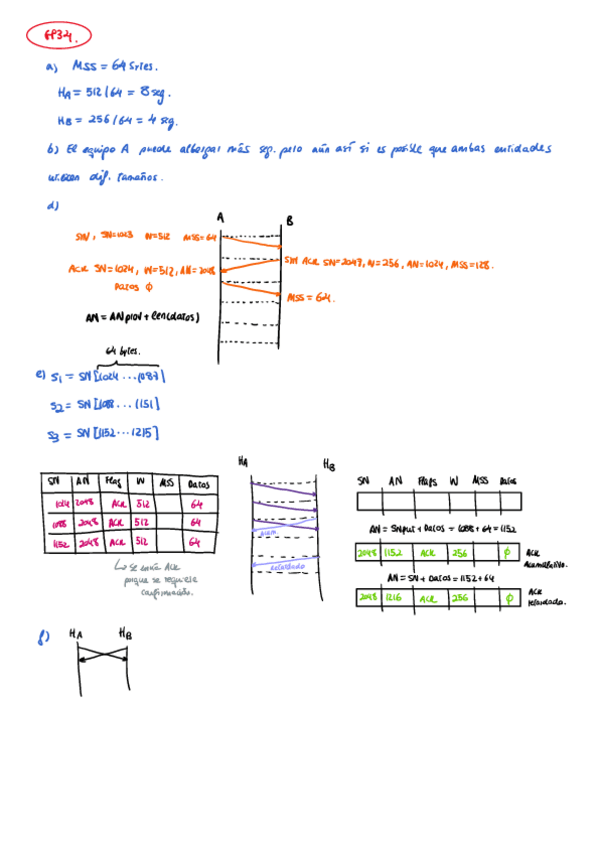 EP34.
a) MSS = 64 bytes.
HA = 512/64 = 8 seg.
HB = 256/64 = 4 seg.
b) El equipo A puede albergar más seg. pero aún así si es posible que ambas entidades
utilicen dif. tamaños.
d)
A B
SYN, SN=1023 W=512 MSS=64
SYN ACK SN=2047, W=256, AN=1024, MSS=128.
ACK SN=1024, W=512, AN=2048
Datos ∅
MSS = 64.
AN = ANprov + len(datos)
64 bytes.
e) S1 = SN[1024 ... 1087]
S2 = SN[1088 ... 1151]
S3 = SN[1152 ... 1215]
HA HB
SN AN Flag W MSS Datos
1024 2048 ACK 512 64
1088 2048 ACK 512 64
1152 2048 ACK 512 64
↳ Se envía ACK
porque se requiere
confirmación.
acum.
retardado
SN AN Flags W MSS Datos
AN = SNput + Datos = 1088 + 64 = 1152
2048 1152 ACK 256 ∅ ACK
Acumulativo.
AN = SN + Datos = 1152 + 64
2048 1216 ACK 256 ∅ ACK
retardado.
f) HA HB